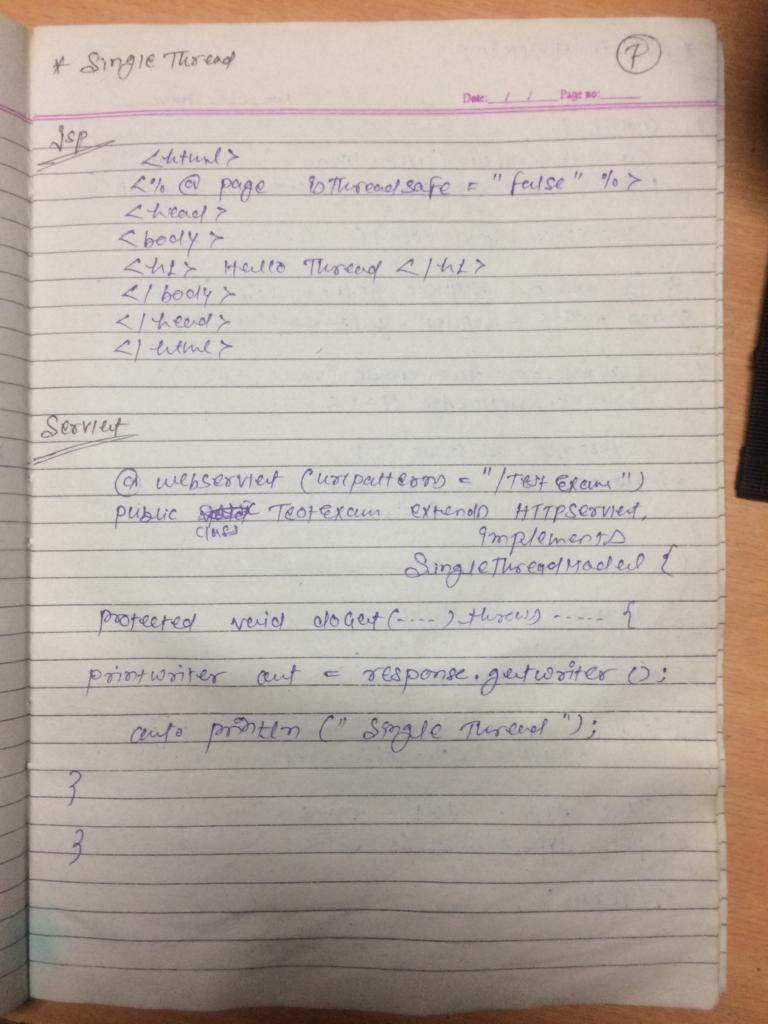 * Single Thread
P
Date: / / Page no:
Jsp
<html>
<% @ page isThreadsafe = "false" %>
<head>
<body>
<h1> Hello Thread </h1>
</body>
</head>
</html>
Servlet
@ webservlet (urlpatterns = "/TestExam")
public TestExam extends HTTPServlet,
class implements
SingleThreadModel {
protected void doGet(-----) throws ----- {
printwriter out = response.getwriter ();
out. println (" Single Thread ");
}
}